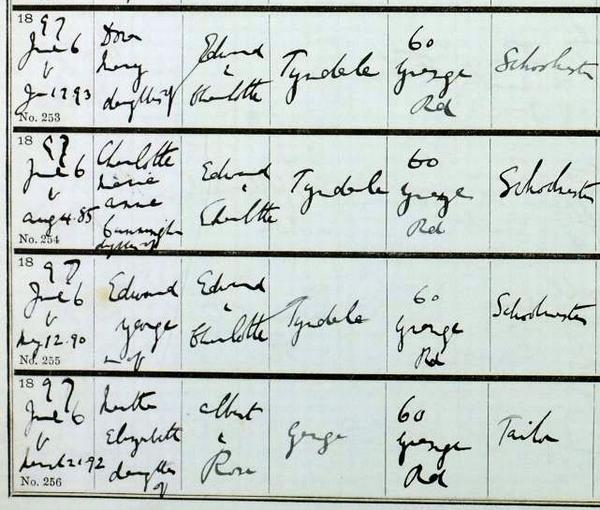 1897
June 6
b
Jan 12 93
No. 253
Dora
daughter of
Edward
&
Charlotte
Tyndale
60
George
Rd
Schoolmaster
1897
June 6
b
Aug 4. 85
No. 254
Charlotte
Marie
Anne
daughter of
Edward
&
Charlotte
Tyndale
60
George
Rd
Schoolmaster
1897
June 6
b
12. 90
No. 255
Edward
George
son of
Edward
&
Charlotte
Tyndale
60
George
Rd
Schoolmaster
1897
June 6
b
March 21. 92
No. 256
Elizabeth
daughter
of
Albert
&
Rose
George
60
George
Rd
Tailor